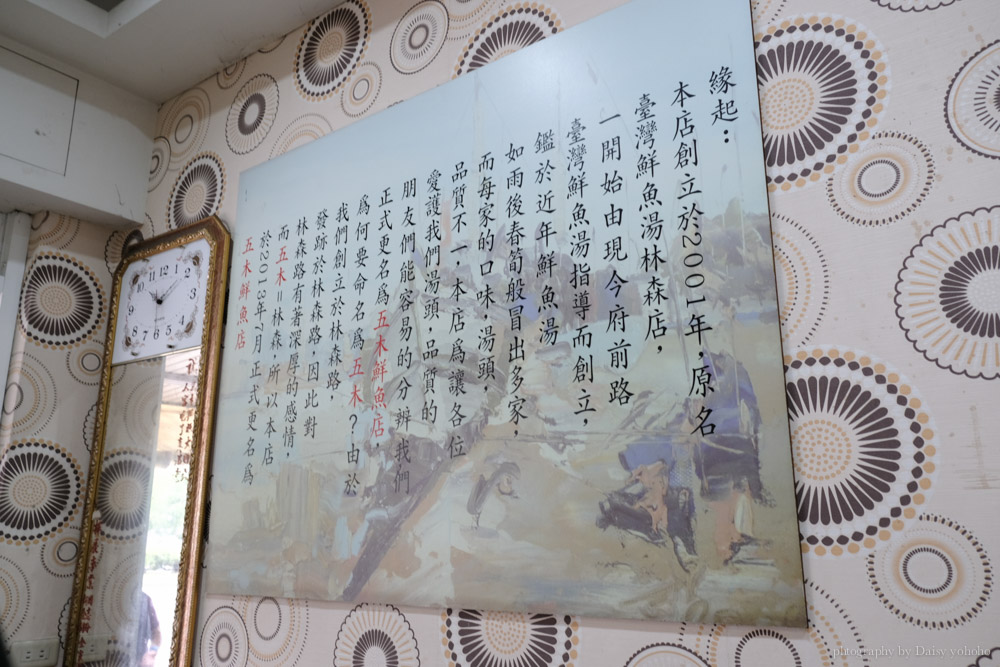 緣起：
本店創立於2001年，原名
臺灣鮮魚湯林森店，
一開始由現今府前路
臺灣鮮魚湯指導而創立，
鑑於近年鮮魚湯
如雨後春筍般冒出多家，
而每家的口味，湯頭，
品質不一，本店為讓各位
愛護我們湯頭，品質的
朋友們能容易的分辨我們
正式更名為五木鮮魚店，
為何要命名為五木？由於
我們創立於林森路，
發跡於林森路，因此對
林森路有著深厚的感情，
而五木＝林森，所以本店
於2013年7月正式更名為
五木鮮魚店
12
1
2
3
4
5
6
7
8
9
10
11
photography by Daisy yohoho